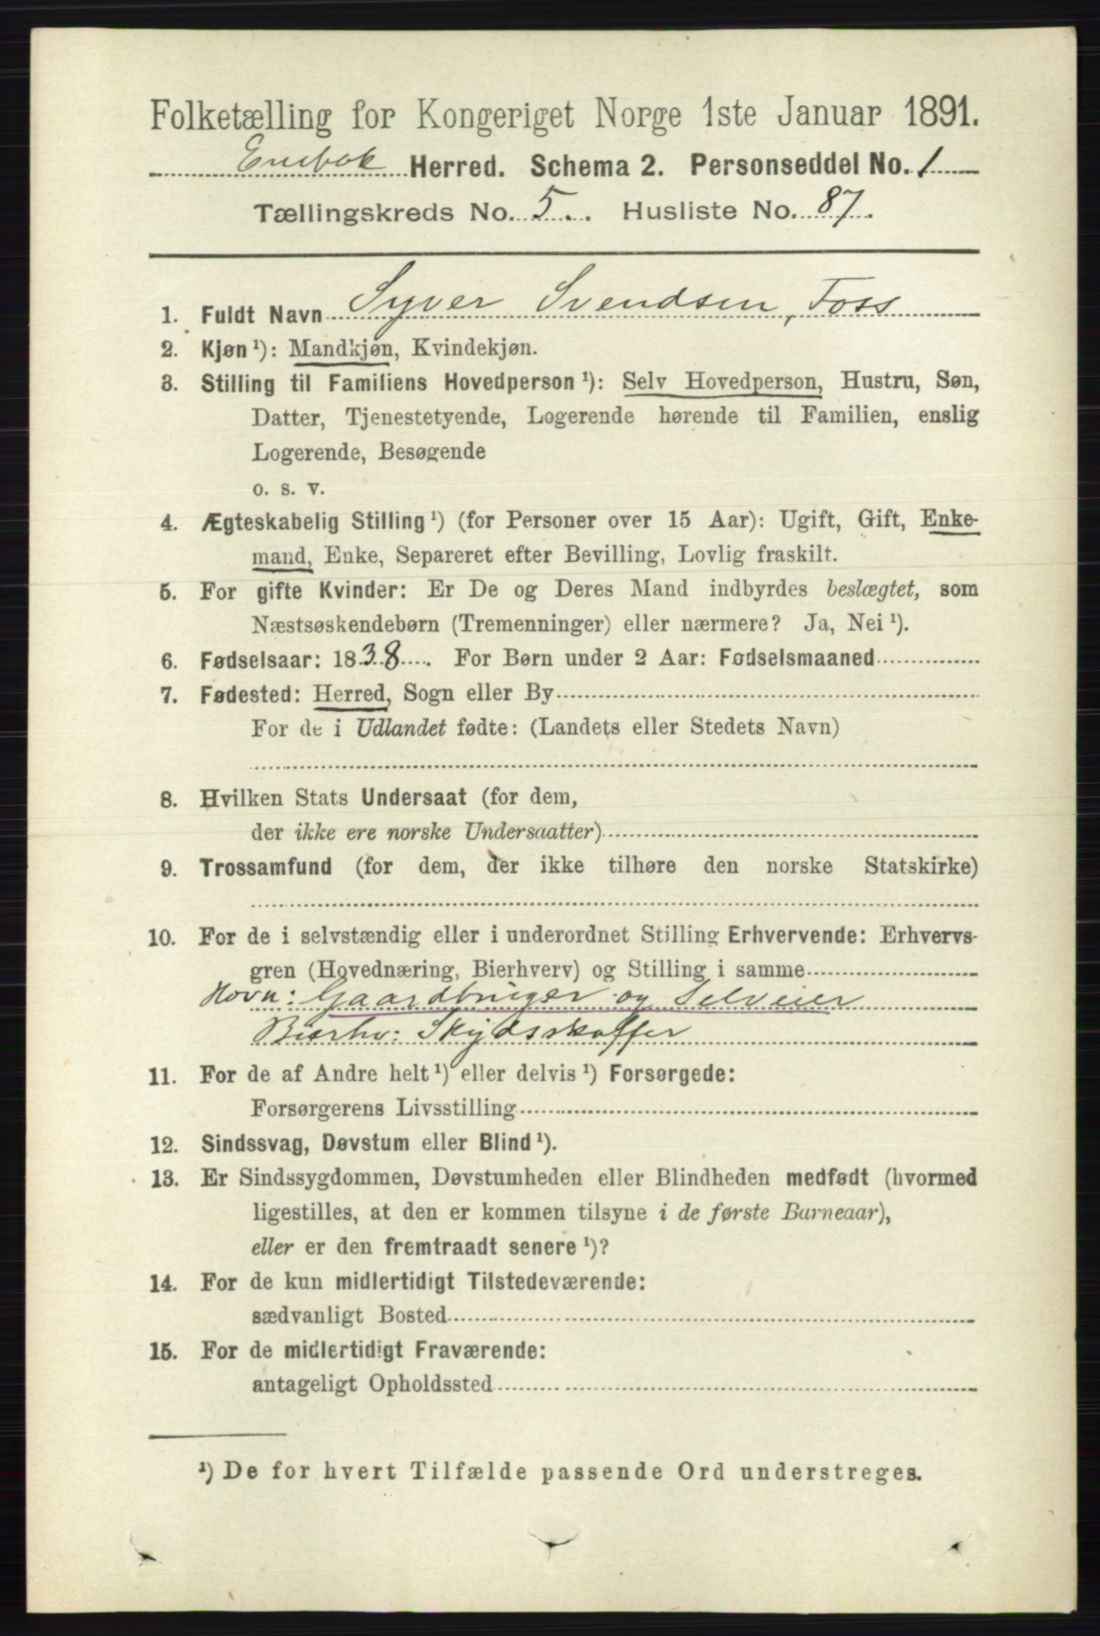 Folketælling for Kongeriget Norge 1ste Januar 1891.
Enebak Herred. Schema 2. Personseddel No. 1
Tællingskreds No. 5. Husliste No. 87.
1. Fuldt Navn Syver Svendsen, Foss
2. Kjøn¹): Mandkjøn, Kvindekjøn.
3. Stilling til Familiens Hovedperson¹): Selv Hovedperson, Hustru, Søn,
Datter, Tjenestetyende, Logerende hørende til Familien, enslig
Logerende, Besøgende
o. s. v.
4. Ægteskabelig Stilling¹) (for Personer over 15 Aar): Ugift, Gift, Enke-
mand, Enke, Separeret efter Bevilling, Lovlig fraskilt.
5. For gifte Kvinder: Er De og Deres Mand indbyrdes beslægtet, som
Næstsøskendebørn (Tremenninger) eller nærmere? Ja, Nei¹).
6. Fødselsaar: 1838. For Børn under 2 Aar: Fødselsmaaned
7. Fødested: Herred, Sogn eller By
For de i Udlandet fødte: (Landets eller Stedets Navn)
8. Hvilken Stats Undersaat (for dem,
der ikke ere norske Undersaatter)
9. Trossamfund (for dem, der ikke tilhøre den norske Statskirke)
10. For de i selvstændig eller i underordnet Stilling Erhvervende: Erhvervs-
gren (Hovednæring, Bierhverv) og Stilling i samme
Hovn: Gaardbruger og Selveier
Bierhv: Skydsskaffer
11. For de af Andre helt¹) eller delvis¹) Forsørgede:
Forsørgerens Livsstilling
12. Sindssvag, Døvstum eller Blind¹).
13. Er Sindssygdommen, Døvstumheden eller Blindheden medfødt (hvormed
ligestilles, at den er kommen tilsyne i de første Barneaar),
eller er den fremtraadt senere¹)?
14. For de kun midlertidigt Tilstedeværende:
sædvanligt Bosted
15. For de midlertidigt Fraværende:
antageligt Opholdssted
¹) De for hvert Tilfælde passende Ord understreges.